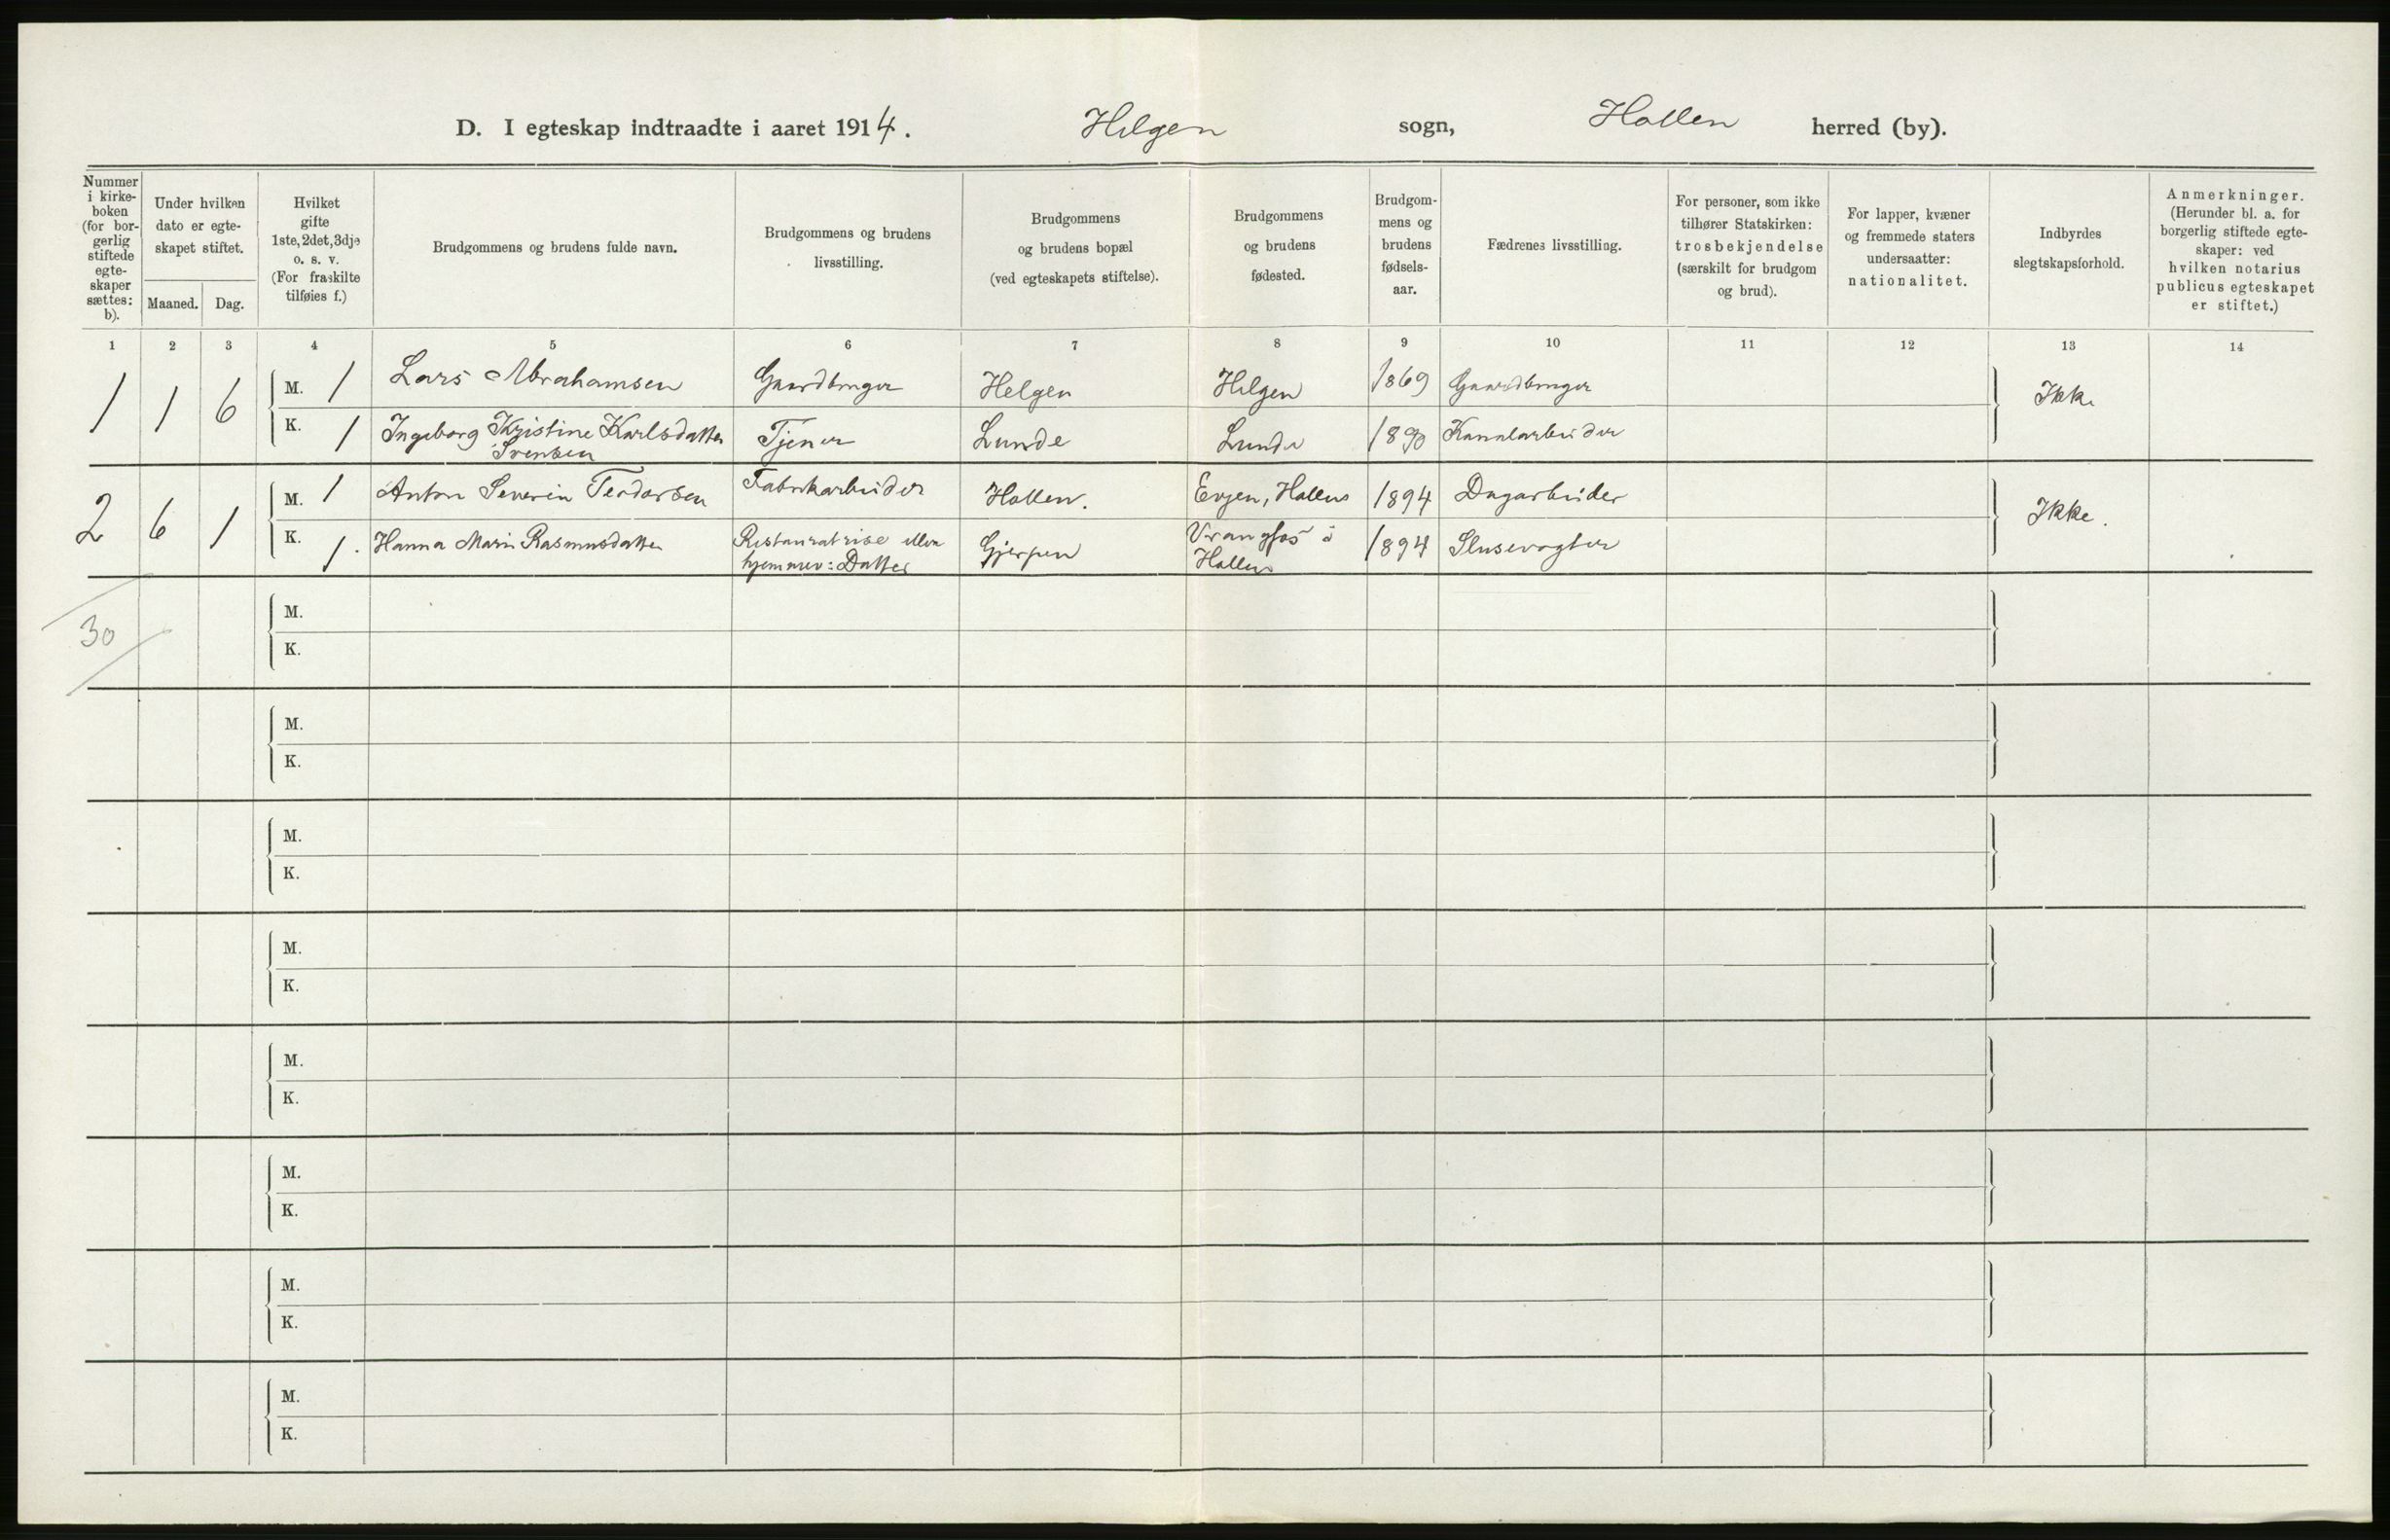 D. I egteskap indtraadte i aaret 1914. Helgen sogn, Hollen herred (by).
Nummer i kirke-boken (for bor-gerlig stiftede egte-skaper sættes: b).
Under hvilken dato er egte-skapet stiftet.
Maaned. Dag.
Hvilket gifte 1ste, 2det, 3dje o. s. v. (For fraskilte tilføies f.)
Brudgommens og brudens fulde navn.
Brudgommens og brudens livsstilling.
Brudgommens og brudens bopæl (ved egteskapets stiftelse).
Brudgommens og brudens fødested.
Brudgom-mens og brudens fødsels-aar.
Fædrenes livsstilling.
For personer, som ikke tilhører Statskirken: trosbekjendelse (særskilt for brudgom og brud).
For lapper, kvæner og fremmede staters undersaatter: nationalitet.
Indbyrdes slegtskapsforhold.
Anmerkninger. (Herunder bl. a. for borgerlig stiftede egte-skaper: ved hvilken notarius publicus egteskapet er stiftet.)
1 2 3 4 5 6 7 8 9 10 11 12 13 14
1 1 6 M. 1 Lars Abrahamsen Gaardbruger Helgen Helgen 1869 Gaardbruger Ikke
K. 1 Ingeborg Kristine Karlsdatter Svensen Tjener Lunde Lunde 1890 Kanalarbeider
2 6 1 M. 1 Anton Severin Teodorsen Fabrikarbeider Hollen. Evjen, Hollen 1894 Dagarbeider Ikke.
K. 1. Hanna Marie Rasmusdatter Restauratrise eller hjemmev: Datter Gjerpen Vrangfos i Hollen 1894 Slusevogter
30
M.
K.
M.
K.
M.
K.
M.
K.
M.
K.
M.
K.
M.
K.
M.
K.